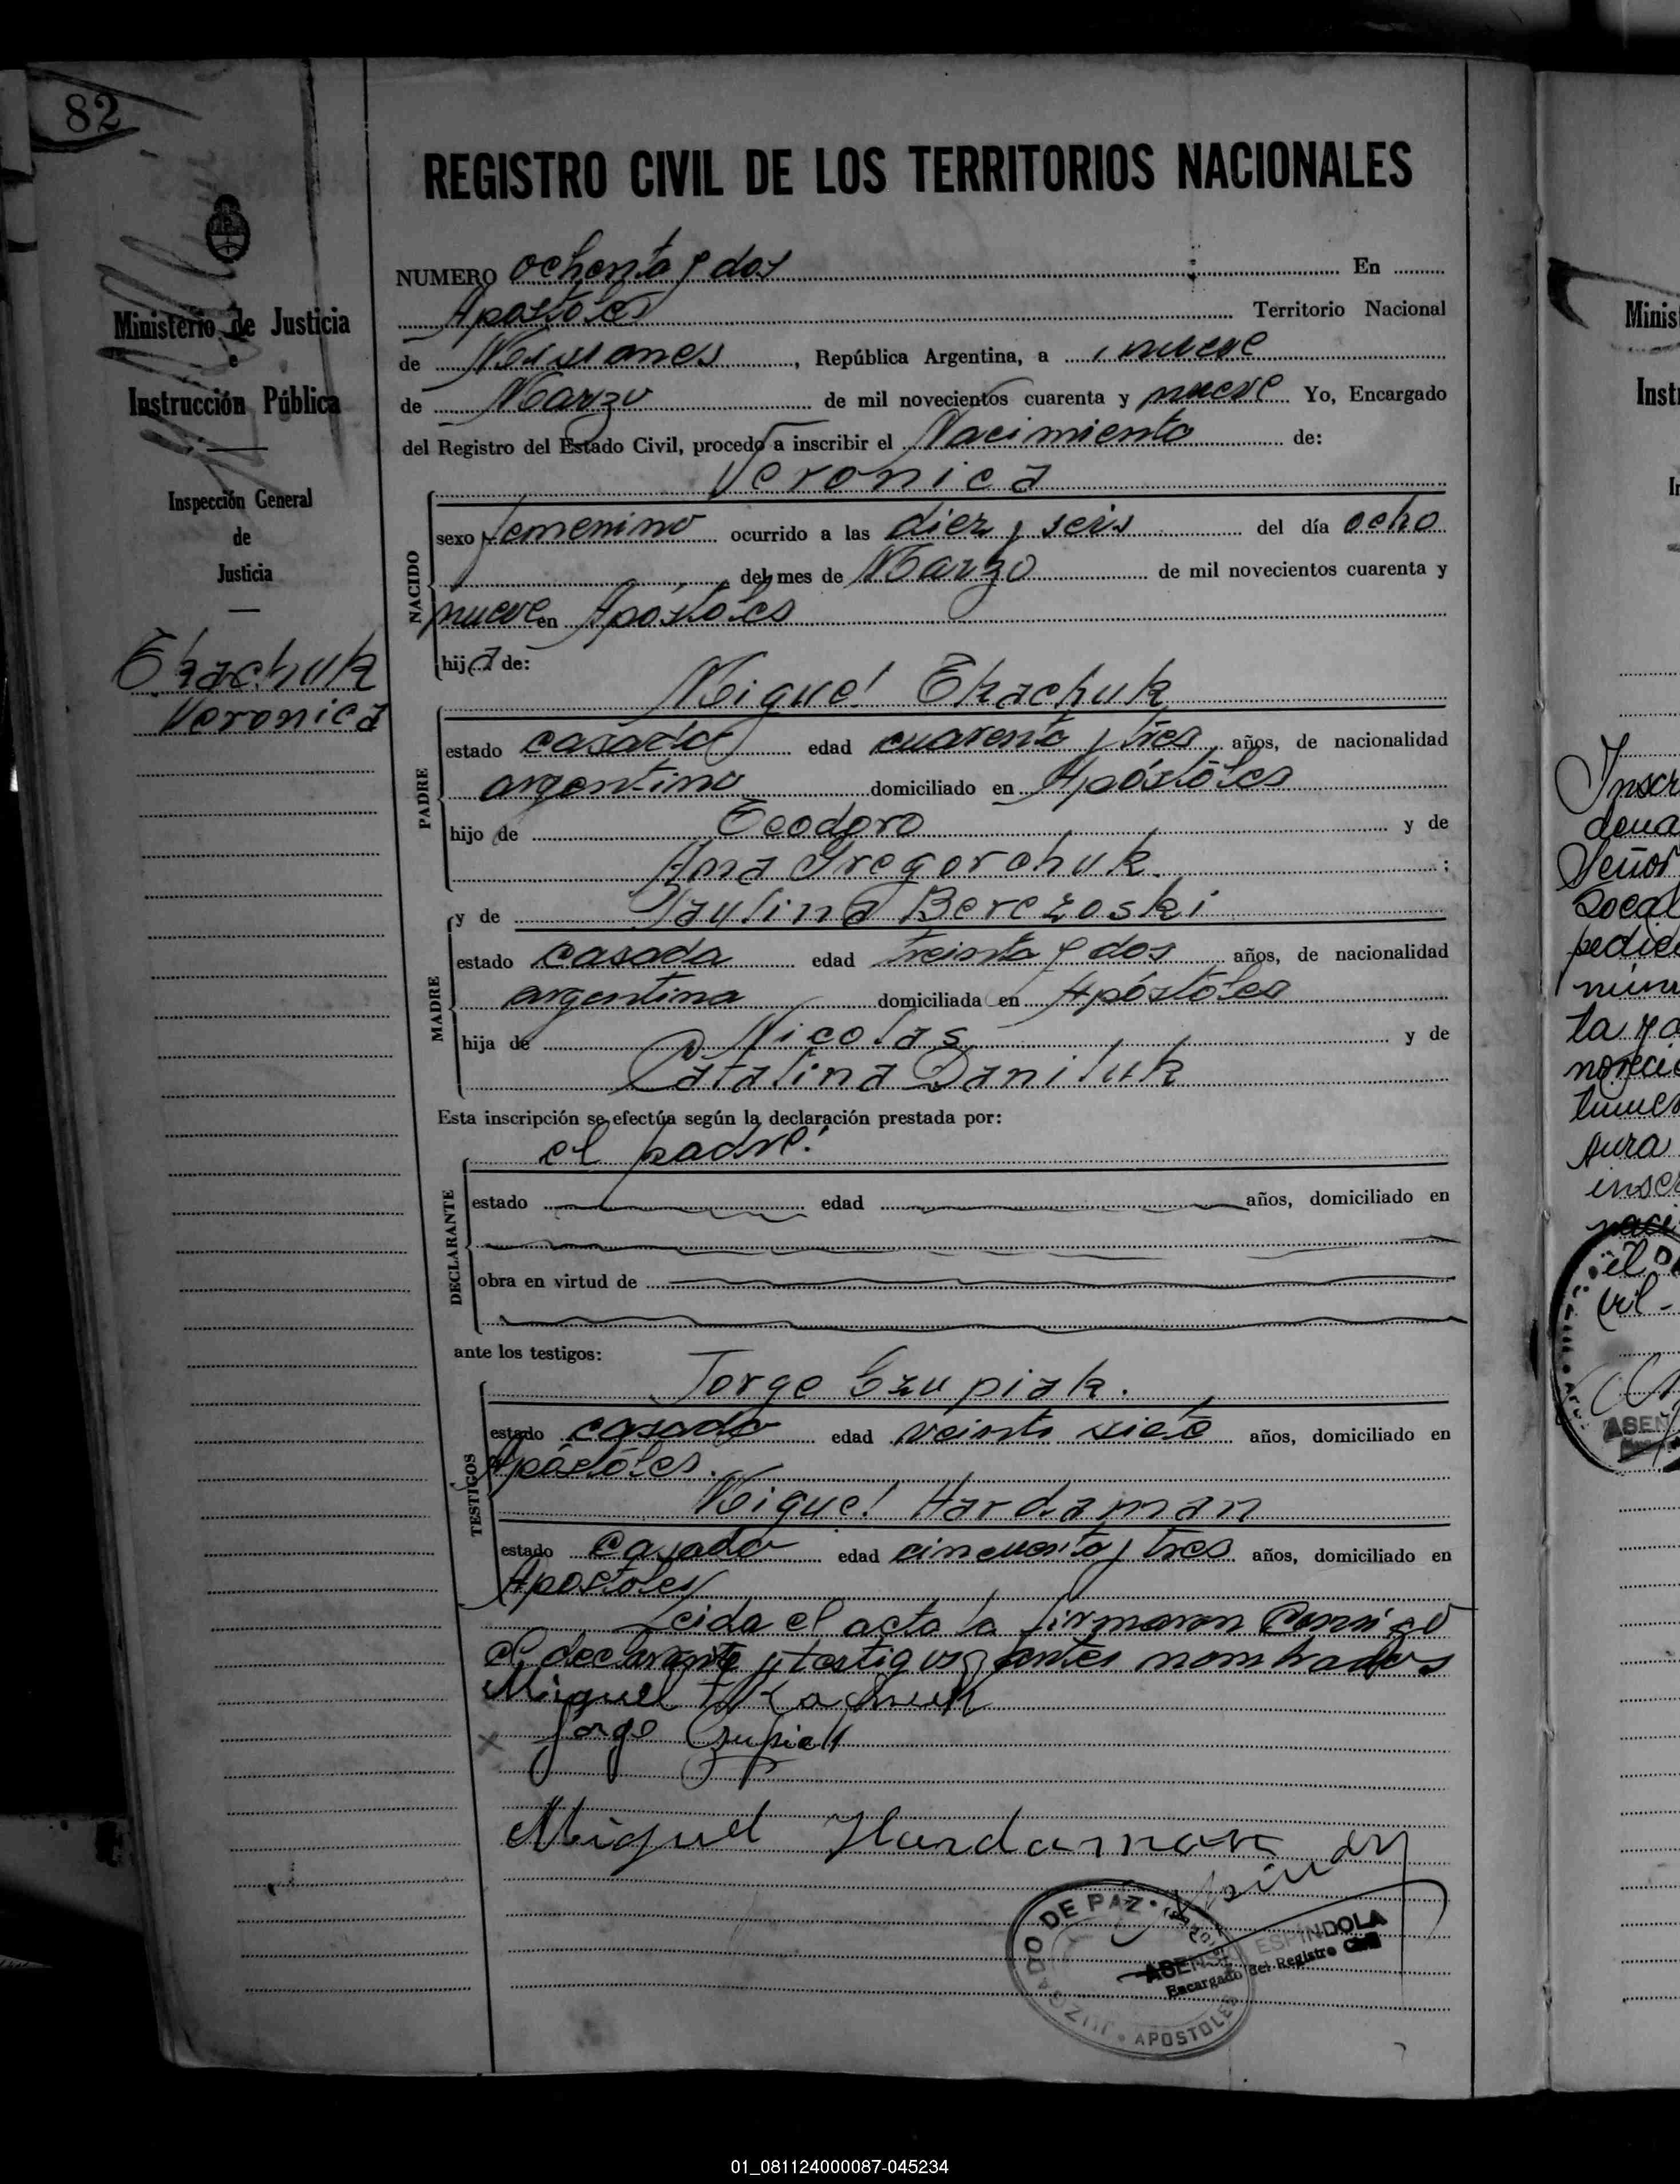 82
REGISTRO CIVIL DE LOS TERRITORIOS NACIONALES
Ministerio de Justicia
e
Instrucción Pública
Inspección General
de
Justicia
Tkachuk
Veronica
NUMERO ochenta y dos En
Apóstoles Territorio Nacional
de Misiones, República Argentina, a nueve
de Marzo de mil novecientos cuarenta y nueve Yo, Encargado
del Registro del Estado Civil, procedo a inscribir el Nacimiento de:
Veronica
NACIDO
sexo femenino ocurrido a las diez y seis del día ocho
del mes de Marzo de mil novecientos cuarenta y
nueve en Apóstoles
hija de:
Miguel Tkachuk
PADRE
estado casado edad cuarenta y tres años, de nacionalidad
argentino domiciliado en Apóstoles
hijo de Teodoro y de
Ana Gregorchuk. ;
y de Paulina Berezoski
MADRE
estado casada edad treinta y dos años, de nacionalidad
argentina domiciliada en Apóstoles
hija de Nicolas y de
Catalina Daniluk
Esta inscripción se efectúa según la declaración prestada por:
el padre.
DECLARANTE
estado edad años, domiciliado en
obra en virtud de
ante los testigos:
Jorge Czupiak.
TESTIGOS
estado casado edad veinte siete años, domiciliado en
Apóstoles.
Miguel Hardaman
estado casado edad cincuenta y tres años, domiciliado en
Apostoles
Leida el acta la firmaron Conmigo
el declarante y testigos antes nombrados
Miguel Tkachuk
Jorge Czupiak
Miguel Hardaman
JUZGADO DE PAZ
APOSTOLES
ESPINDOLA
Encargado del Registro Civil
Minis
Inst
In
Inscr
Señor
Local
pedid
la
inscr
el
ASEN
01_081124000087-045234